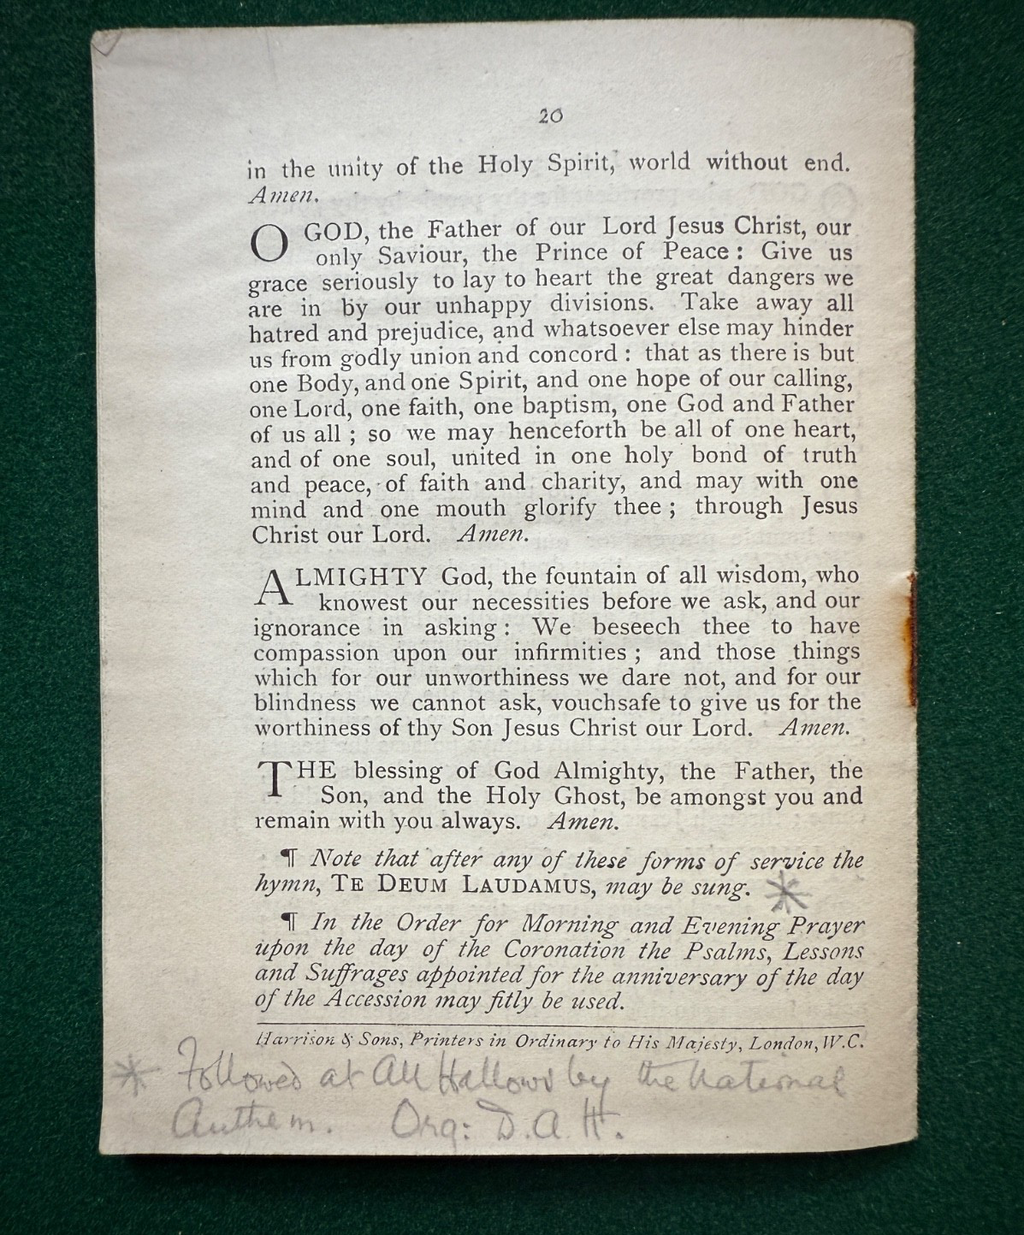 20
in the unity of the Holy Spirit, world without end.
Amen.
O GOD, the Father of our Lord Jesus Christ, our
only Saviour, the Prince of Peace : Give us
grace seriously to lay to heart the great dangers we
are in by our unhappy divisions. Take away all
hatred and prejudice, and whatsoever else may hinder
us from godly union and concord : that as there is but
one Body, and one Spirit, and one hope of our calling,
one Lord, one faith, one baptism, one God and Father
of us all ; so we may henceforth be all of one heart,
and of one soul, united in one holy bond of truth
and peace, of faith and charity, and may with one
mind and one mouth glorify thee ; through Jesus
Christ our Lord. Amen.
ALMIGHTY God, the fountain of all wisdom, who
knowest our necessities before we ask, and our
ignorance in asking : We beseech thee to have
compassion upon our infirmities ; and those things
which for our unworthiness we dare not, and for our
blindness we cannot ask, vouchsafe to give us for the
worthiness of thy Son Jesus Christ our Lord. Amen.
THE blessing of God Almighty, the Father, the
Son, and the Holy Ghost, be amongst you and
remain with you always. Amen.
¶ Note that after any of these forms of service the
hymn, TE DEUM LAUDAMUS, may be sung. *
¶ In the Order for Morning and Evening Prayer
upon the day of the Coronation the Psalms, Lessons
and Suffrages appointed for the anniversary of the day
of the Accession may fitly be used.
Harrison & Sons, Printers in Ordinary to His Majesty, London, W.C.
* Followed at All Hallows by the National
Anthem. Org: D.A.H.